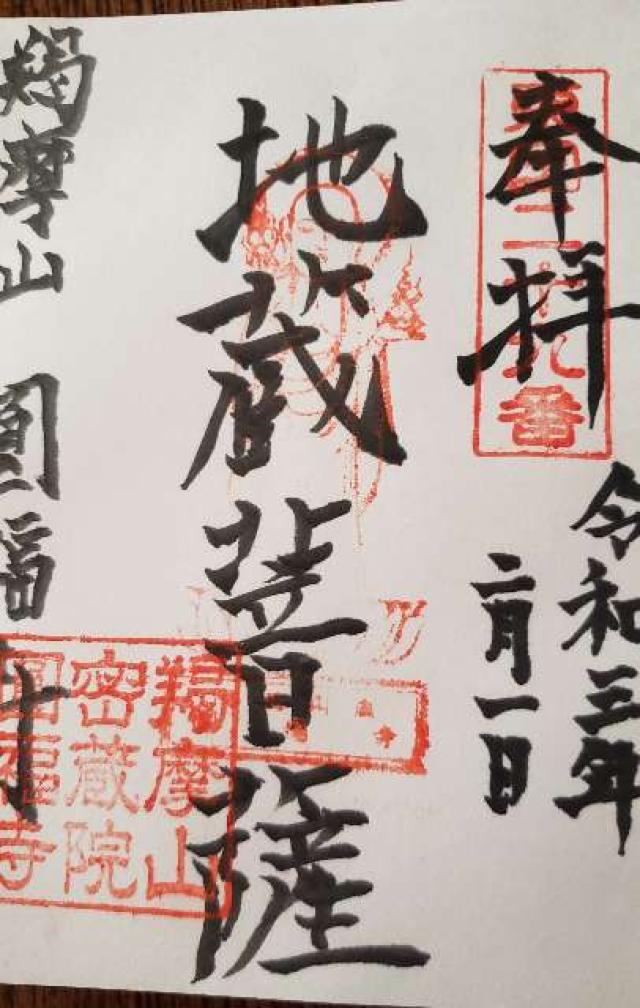 奉拝
番
令和三年
二月一日
地蔵菩薩
羯摩山 圓福寺
羯摩山
密蔵院
圓福寺